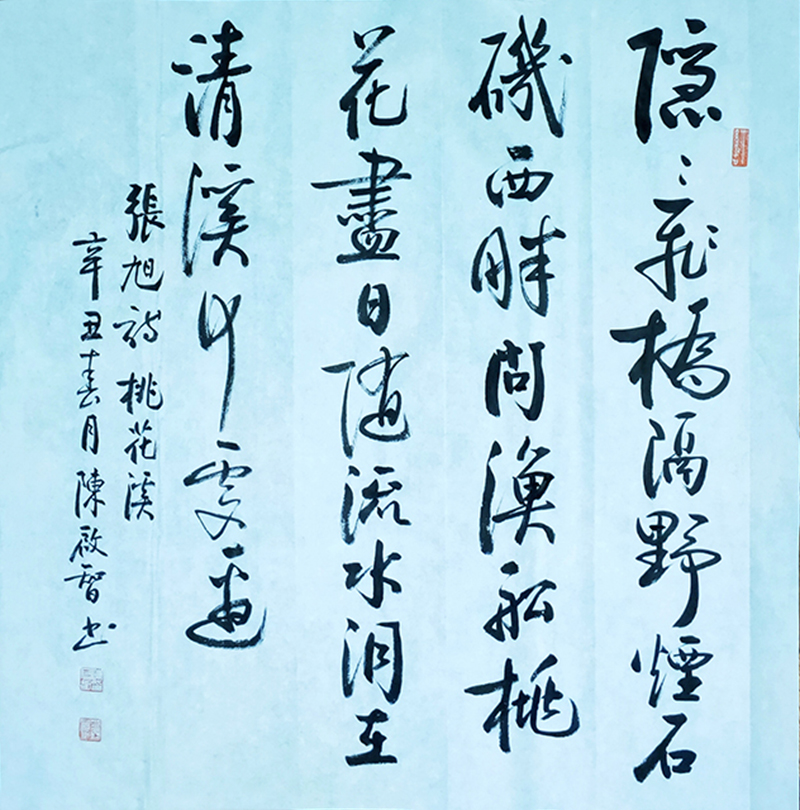 隐〻飛橋隔野煙石
磯西畔問漁船桃
花盡日随流水洞在
清溪何處邊
張旭詩桃花溪
辛丑春月陳啟智书